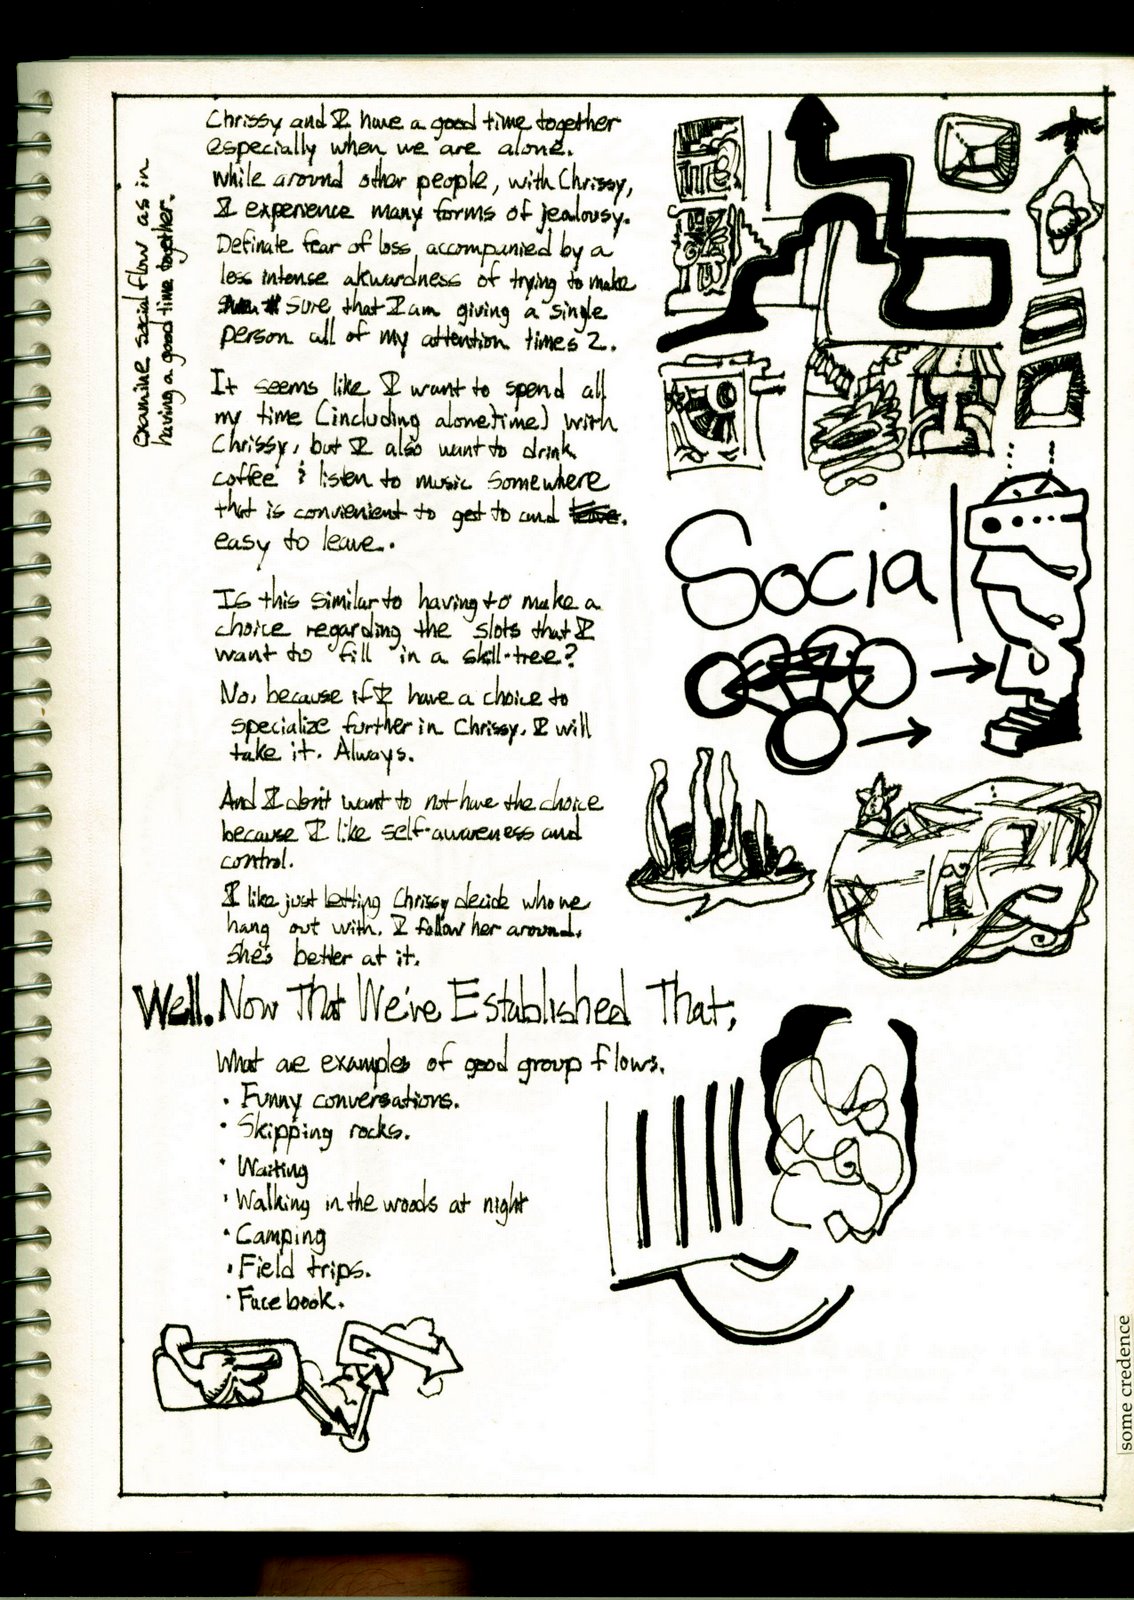 examine social flow as in
having a good time together.
Chrissy and I have a good time together
especially when we are alone.
While around other people, with Chrissy,
I experience many forms of jealousy.
Definate fear of loss, accompanied by a
less intense akwardness of trying to make
sure that I am giving a single
person all of my attention times 2.
It seems like I want to spend all
my time (including alone time) with
Chrissy, but I also want to drink
coffee & listen to music somewhere
that is convienient to get to and leave.
easy to leave.
Is this similar to having to make a
choice regarding the slots that I
want to fill in a skill-tree?
No, because if I have a choice to
specialize further in Chrissy, I will
take it. Always.
And I don't want to not have the choice
because I like self-awareness and
control.
I like just letting Chrissy decide who we
hang out with. I follow her around.
She's better at it.
Well. Now That We've Established That,
What are examples of good group flows.
• Funny conversations.
• Skipping rocks.
• Waiting
• Walking in the woods at night
• Camping
• Field trips.
• Facebook.
Social
some credence